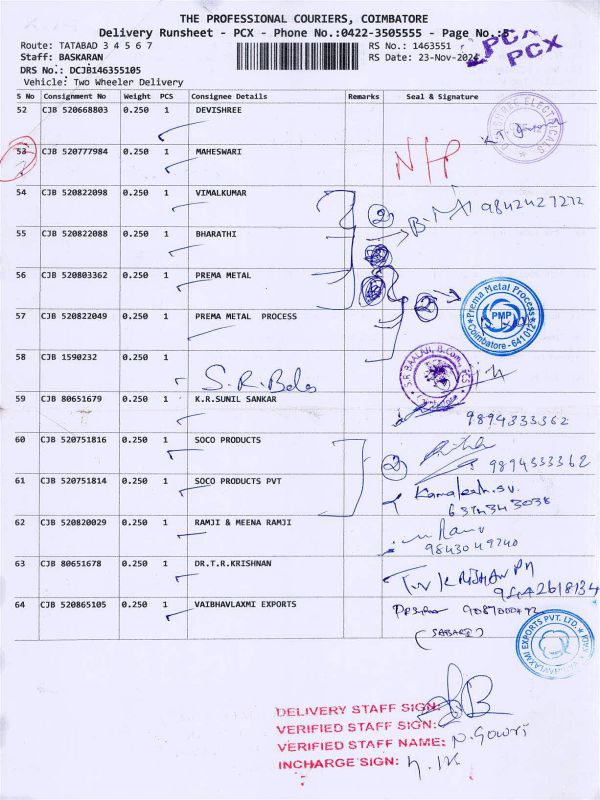 THE PROFESSIONAL COURIERS, COIMBATORE
Delivery Runsheet - PCX - Phone No.:0422-3505555 - Page No.:5
PCX
PCX
Route: TATABAD 3 4 5 6 7
RS No.: 1463551
Staff: BASKARAN
RS Date: 23-Nov-202
DRS No.: DCJB146355105
Vehicle: Two Wheeler Delivery
S No Consignment No Weight PCS Consignee Details Remarks Seal & Signature
52 CJB 520668803 0.250 1 DEVISHREE
53 CJB 520777984 0.250 1 MAHESWARI N/P
54 CJB 520822098 0.250 1 VIMALKUMAR
2 9842427272
55 CJB 520822088 0.250 1 BHARATHI
56 CJB 520803362 0.250 1 PREMA METAL
2
Prema Metal Process
PMP
Coimbatore - 641 012
57 CJB 520822049 0.250 1 PREMA METAL PROCESS
58 CJB 1590232 0.250 1
S.R. BAALAJI, B.Com., FCS
59 CJB 80651679 0.250 1 K.R.SUNIL SANKAR
9894333362
60 CJB 520751816 0.250 1 SOCO PRODUCTS
2 9894333362
61 CJB 520751814 0.250 1 SOCO PRODUCTS PVT
Kamalesh.S.V.
6374343038
62 CJB 520820029 0.250 1 RAMJI & MEENA RAMJI
9843049240
63 CJB 80651678 0.250 1 DR.T.R.KRISHNAN
9442618134
64 CJB 520865105 0.250 1 VAIBHAVLAXMI EXPORTS
(SABARI)
EXPORTS PVT. LTD.
DELIVERY STAFF SIGN:
VERIFIED STAFF SIGN:
VERIFIED STAFF NAME: N.Gowri
INCHARGE SIGN: